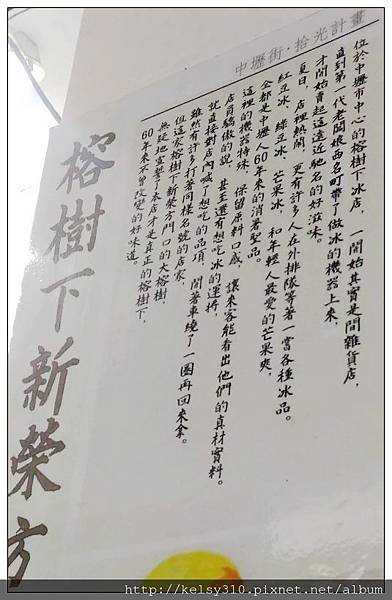 中壢街·拾光計畫
位於中壢市中心的榕樹下冰店，一開始其實是間雜貨店，
直到第一代老闆娘西名町帶了做冰的機器上來，
才開始賣起這遠近馳名的好滋味。
夏日，店裡熱鬧，更有許多人在外排隊等著一嘗各種冰品。
紅豆冰、綠豆冰、芒果冰，和年輕人最愛的芒果爽，
全都是中壢人60年來的消暑聖品。
這裡的機器特殊，保留原料口感，讓來客能看出他們的真材實料。
店員驕傲的說，甚至還有想吃冰的運將，
就直接對店內喊了想吃的品項，開著車繞了一圈再回來拿。
雖然有許多打著同樣名號的店家，
但這家榕樹下新榮方門口的大榕樹
無疑地宣誓了本店才是真正的榕樹下，
60年來不曾改變的好味道。
榕樹下新榮方
http://kelsy310.pixnet.net/album